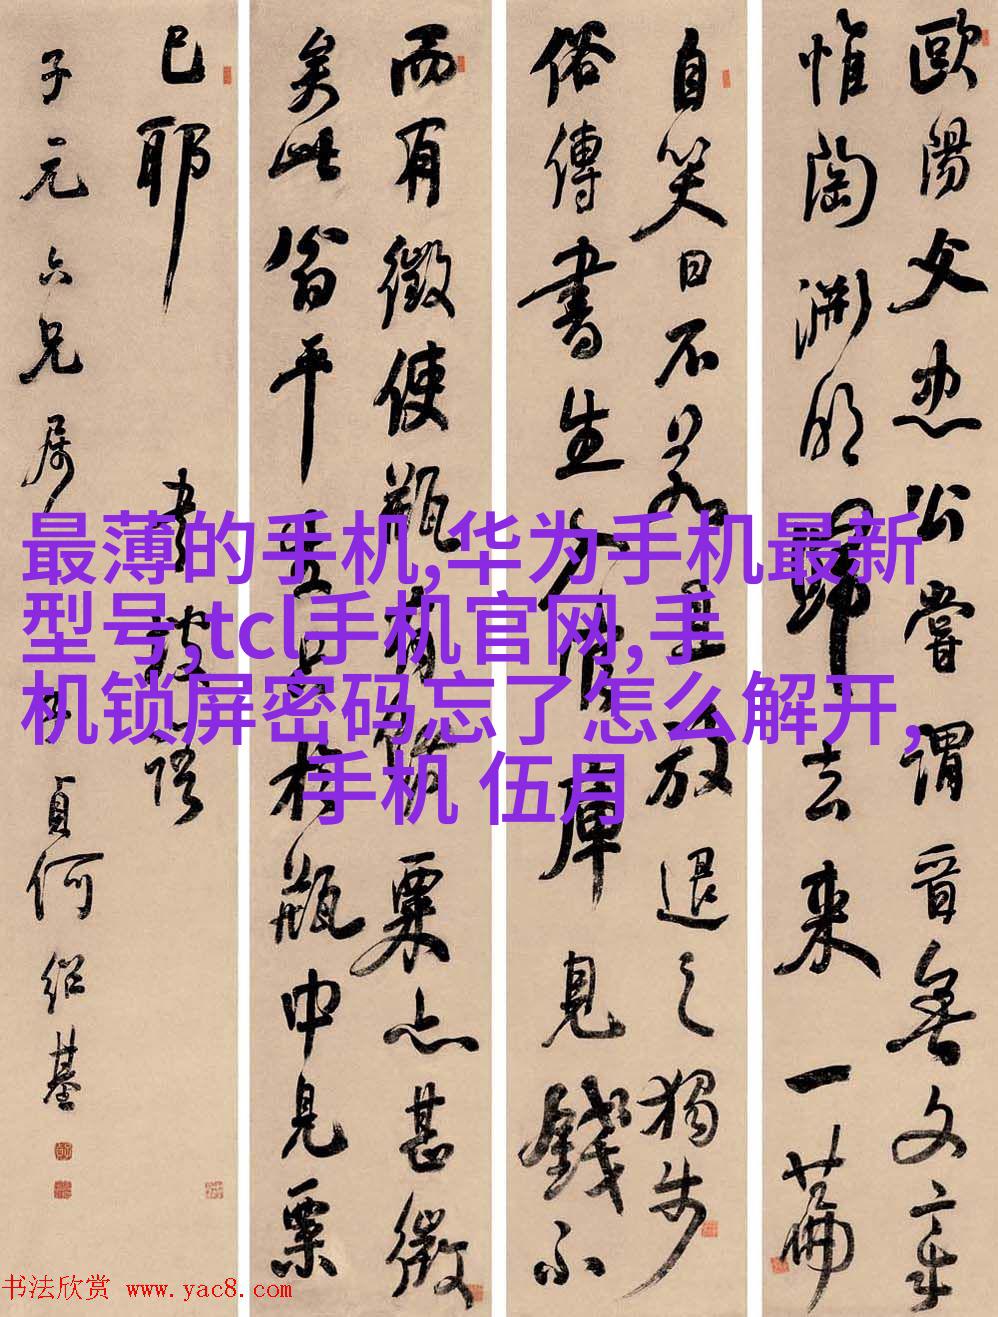 歐陽文忠公嘗謂晉無文章
惟陶淵明歸去來一篇
自笑曰不若且放退之獨步
俗傳書生入官庫見錢不
而有徵使瓶有儲粟亦甚微
矣此翁平生只於瓶中見粟
已耶 書坡語
子元六兄屬 子貞何紹基
最薄的手机,华为手机最新
型号,tcl手机官网,手
机锁屏密码忘了怎么解开,
手机 伍月
书法欣赏 www.yac8.com